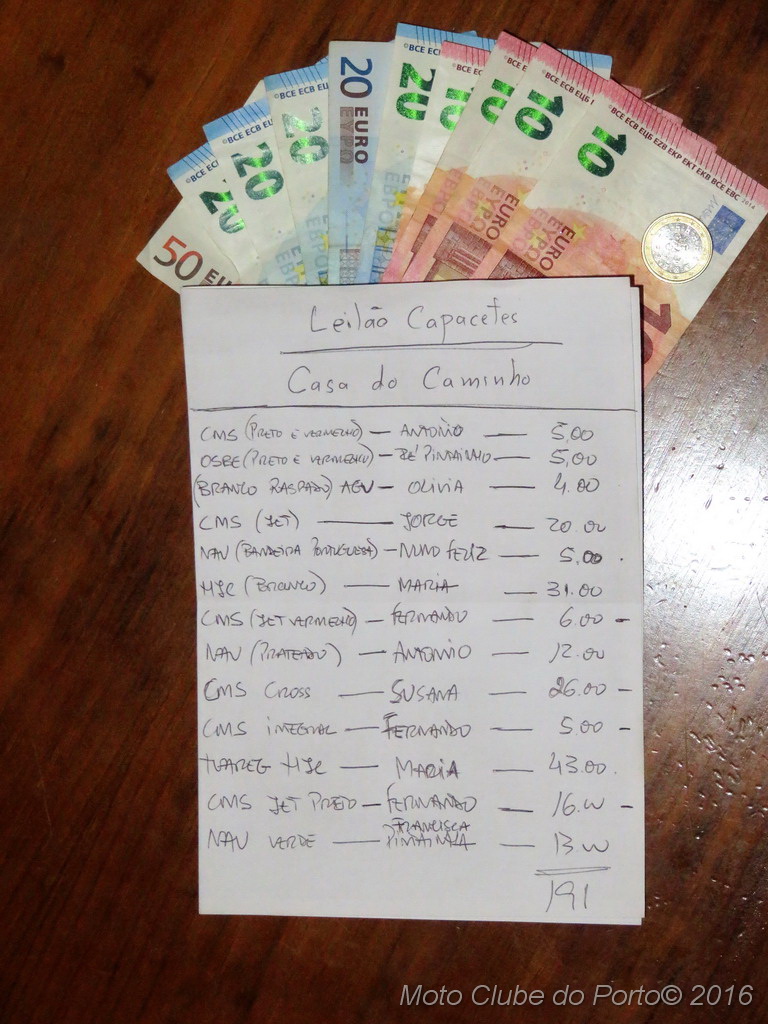 50 EU
20
20
20
20 EURO
ΕΥΡΩ
20
10
10
10
10
BCE ECB
BCE ECB EU
BCE ECB EZB EKP EKT EKB BCE EBC 2014
EURO
EURO
EURO
Leilão Capacetes
Casa do Caminho
CMS (PRETO E VERMELHO) — ANTONIO — 5,00
OSBE (PRETO E VERMELHO) — ZÉ PINTAINHO — 5,00
(BRANCO RASPADO) AGV — OLIVIA — 4.00
CMS (JET) — JORGE — 20.00
NAU (BANDEIRA PORTUGUESA) — NUNO FELIZ — 5,00
HJC (BRANCO) — MARIA — 31.00
CMS (JET VERMELHO) — FERNANDO — 6.00 -
NAU (PRATEADO) — ANTONIO — 12.00
CMS CROSS — SUSANA — 26.00 -
CMS INTEGRAL — FERNANDO — 5.00 -
TUAREG HJC — MARIA — 43.00.
CMS JET PRETO — FERNANDO — 16.00 -
FRANCISCA
NAU VERDE — PINTAINHA — 13.00
191
Moto Clube do Porto© 2016